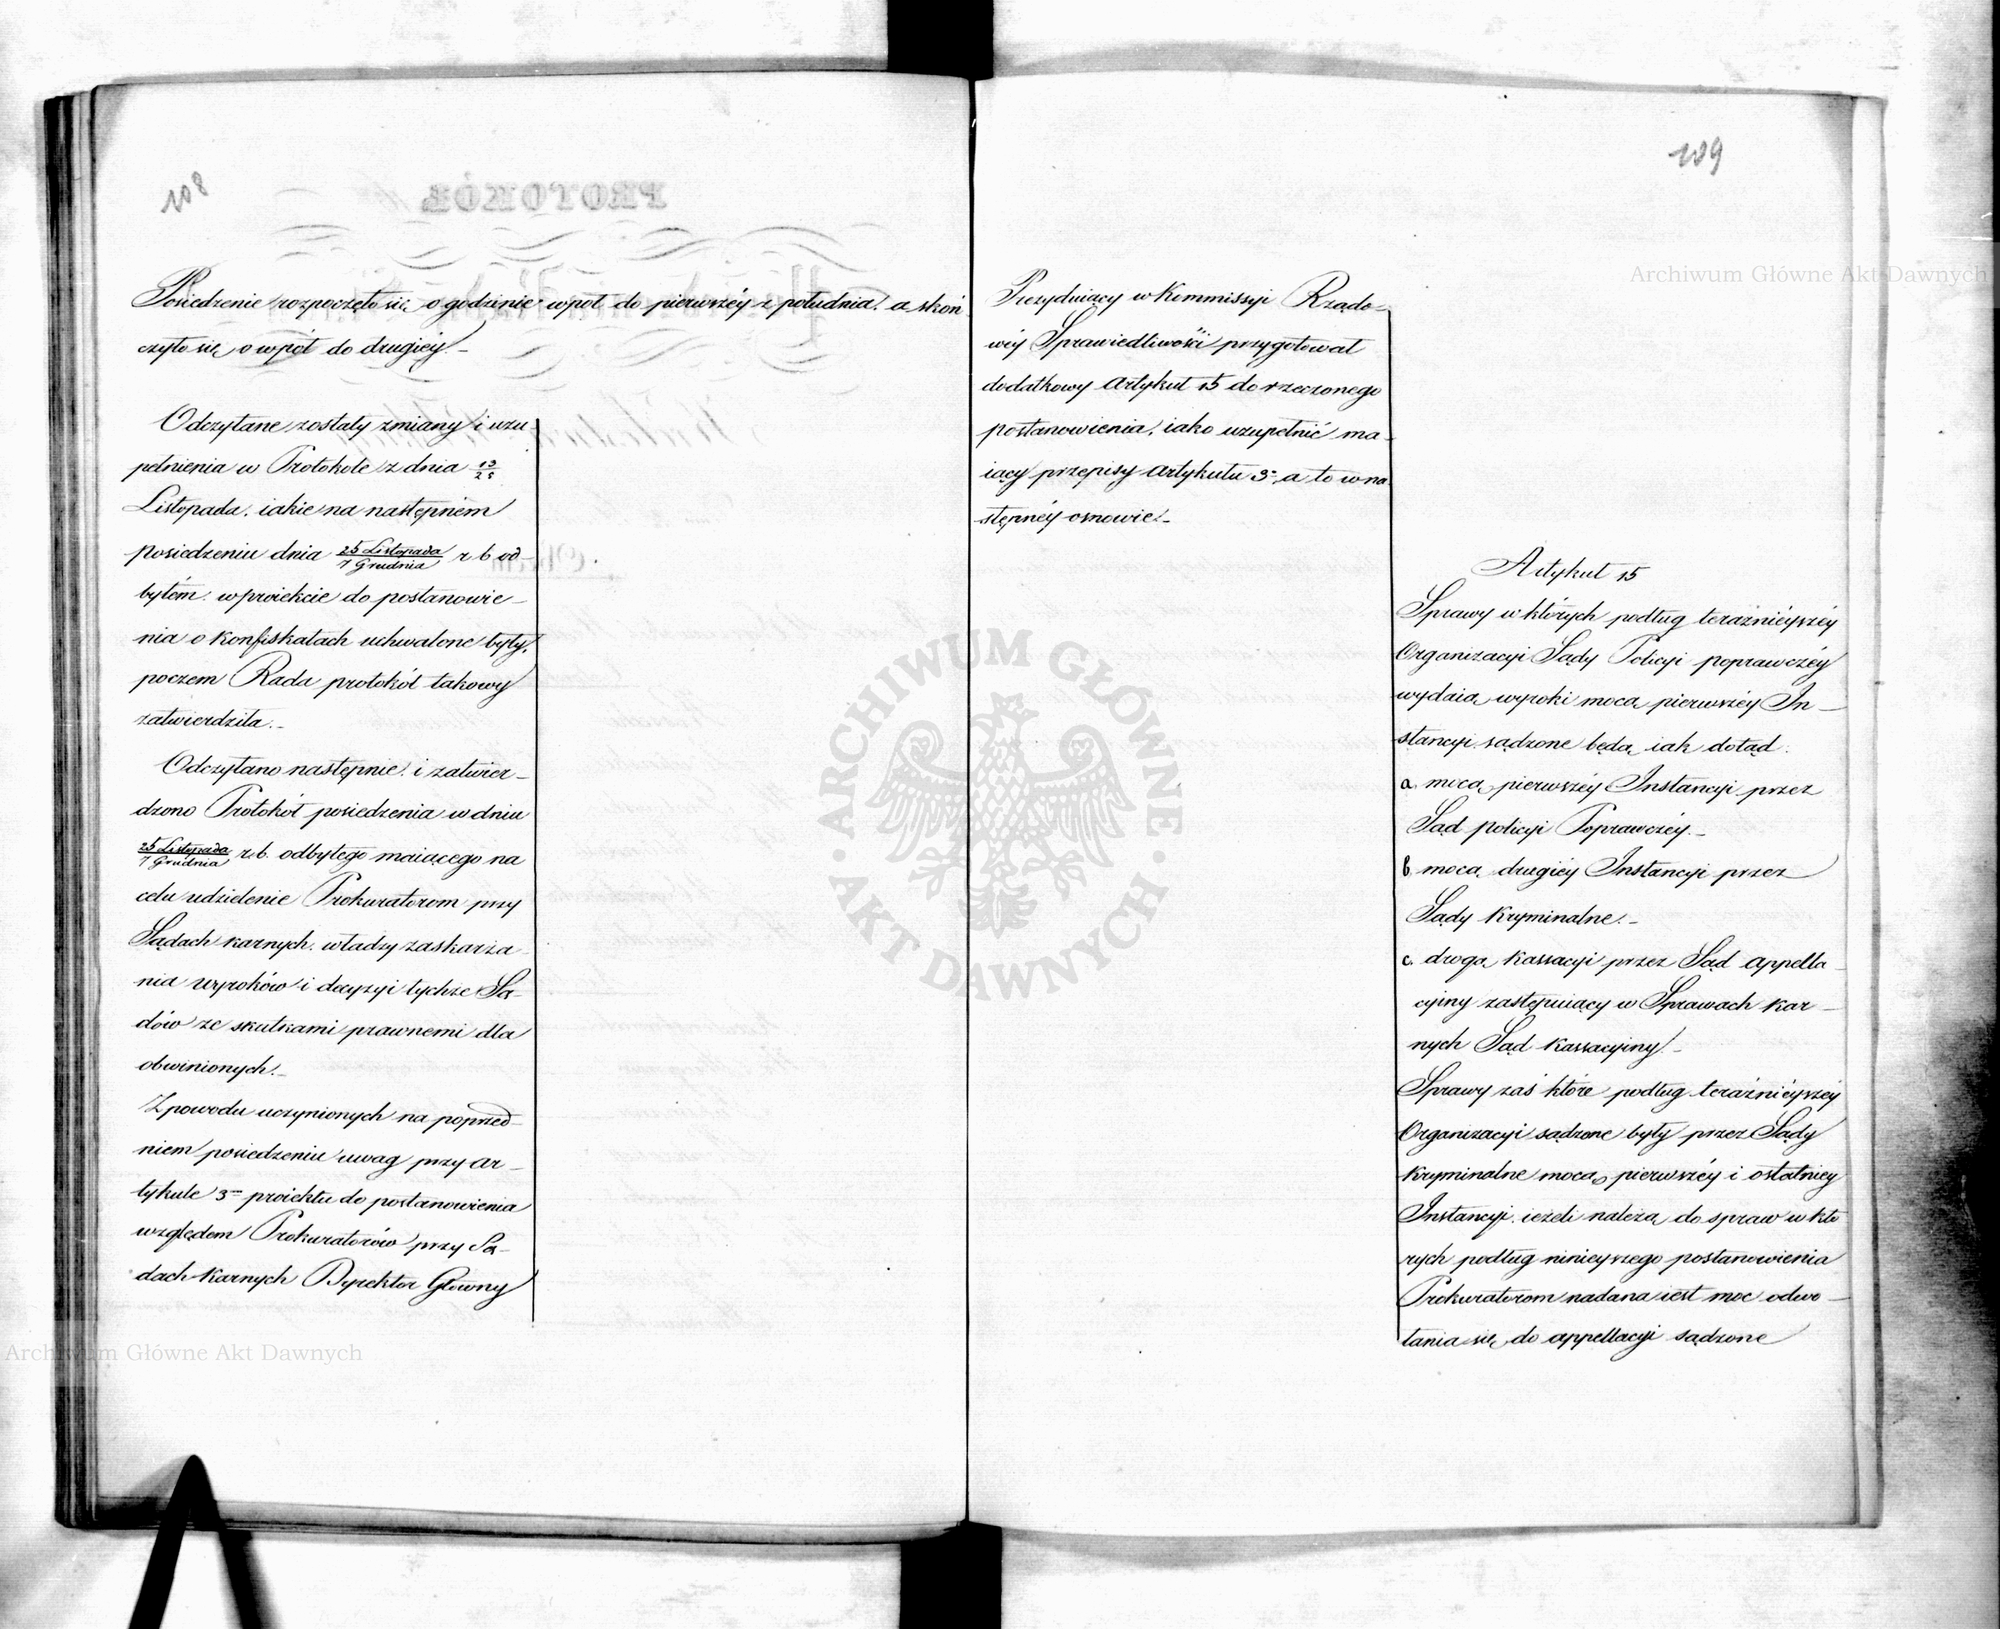 108
Posiedzenie rozpoczęło się o godzinie wpół do pierwszéy z południa, a skoń
czyło się o wpół do drugiéy.–
Odczytane zostały zmiany i uzu-
pełnienia w Protokole z dnia 13/25
Listopada, iakie na następném
posiedzeniu dnia 25 Listopada/7 Grudnia r b od-
bytém, w proiekcie do postanowie-
nia o konfiskatach uchwalone były,
poczem Rada protokół takowy
zatwierdziła.–
Odczytano następnie i zatwier-
dzono Protokół posiedzenia w dniu
25 Listopada/7 Grudnia r. b. odbytego maiącego na
celu udzielenie Prokuratorom przy
Sądach karnych, władzy zaskarża-
nia wyroków i decyzyi tychże Są-
dów ze skutkami prawnemi dla
obwinionych.–
Z powodu uczynionych na poprzed-
niem posiedzeniu uwag przy ar-
tykule 3m proiektu do postanowienia
względem Prokuratorów przy Są-
dach karnych Dyrektor Główny
109
Prezyduiący w Kommissyi Rządo-
wéy Sprawiedliwości przygotował
dodatkowy artykuł 15 do rzeczonego
postanowienia, iako uzupełnić ma-
iący przepisy artykułu 3o, a to w na
stępnéy osnowie.–
Artykuł 15
Sprawy w których podług teraźniéyszéy
Organizacyi Sądy Policyi poprawczéy
wydaią wyroki mocą pierwszéy In-
stancyi, sądzone będą iak dotąd:
a. mocą pierwszéy Instancyi przez
Sąd policyi Poprawczéy.–
b. mocą drugiéy Instancyi przez
Sądy Kryminalne.–
c. drogą kassacyi przez Sąd appella-
cyiny zastępuiący w Sprawach kar-
nych Sąd kassacyiny.–
Sprawy zaś które podług teraźniéyszéy
Organizacyi sądzone były przez Sądy
Kryminalne mocą pierwszéy i ostatniey
Instancyi, ieżeli należą do spraw w któ
rych podług ninieyszego postanowienia
Prokuratorom nadana iest moc odwo-
łania się do appellacyi sądzone
Archiwum Główne Akt Dawnych
Archiwum Główne Akt Dawnych
ARCHIWUM GŁÓWNE
AKT DAWNYCH